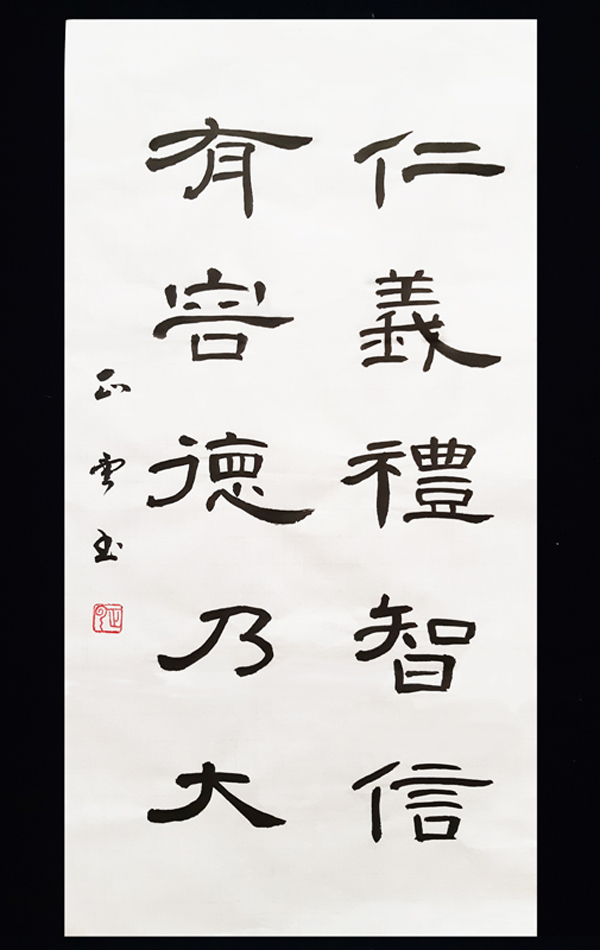 仁義禮智信
有容德乃大
正雲